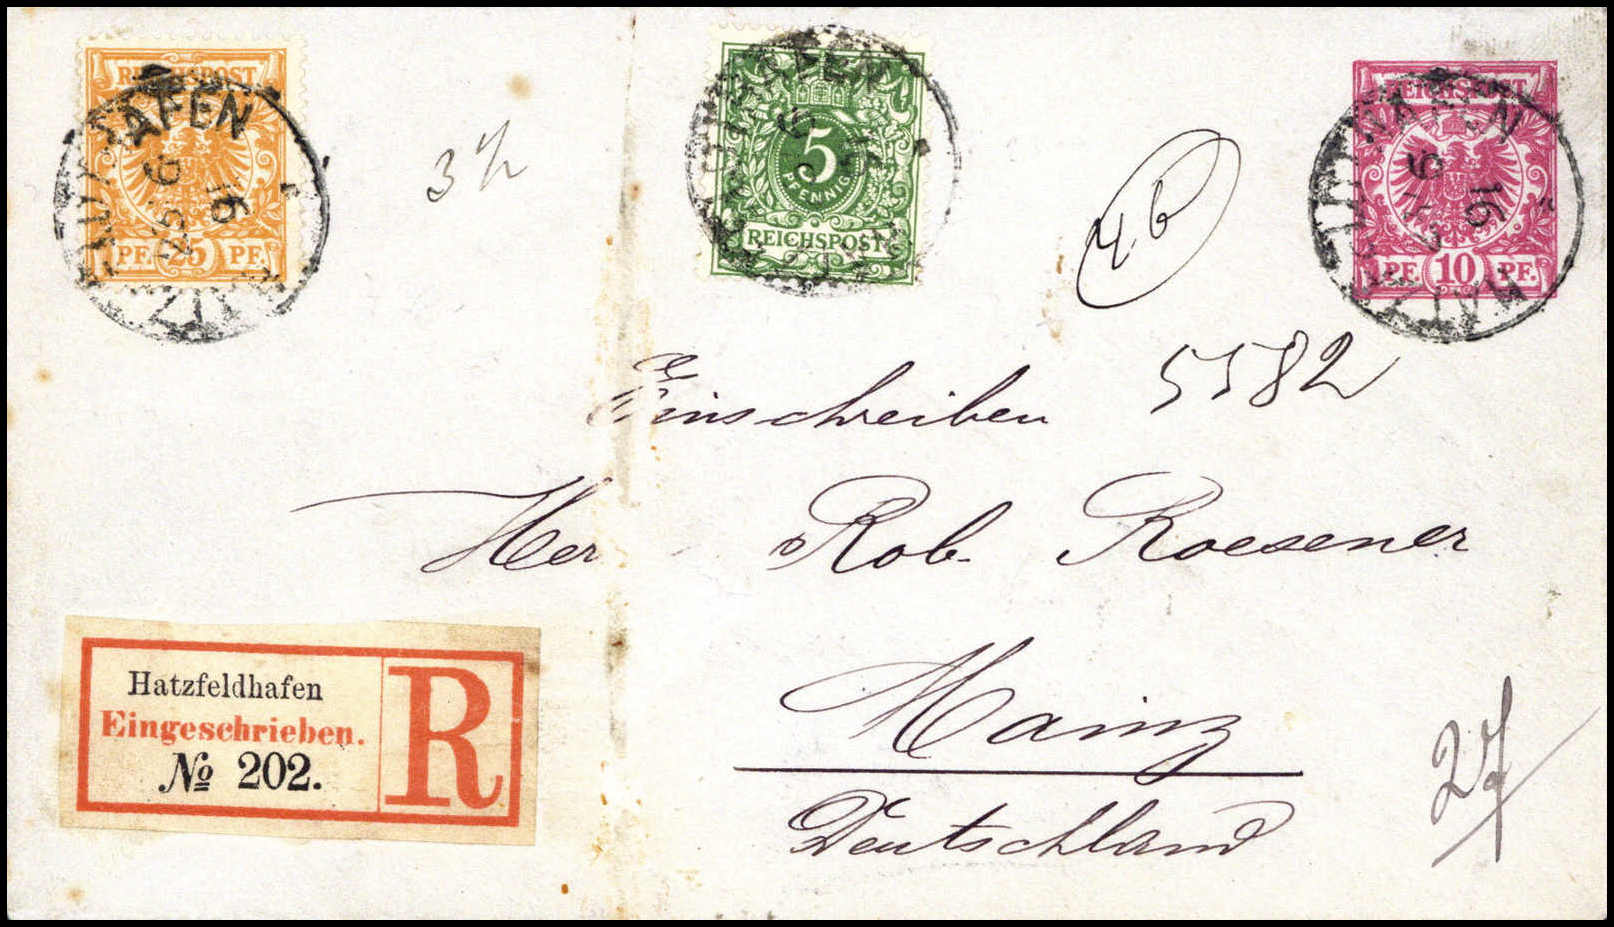 REICHSPOST
PF. 25 PF.
HATZFELDHAFEN
5
PFENNIG
REICHSPOST
REICHSPOST
PF. 10 PF.
HATZFELDHAFEN
3 ½
4b
Einschreiben 5582
Her Rob. Roesener
Mainz
Deutschland
Hatzfeldhafen
Eingeschrieben.
No 202.
R